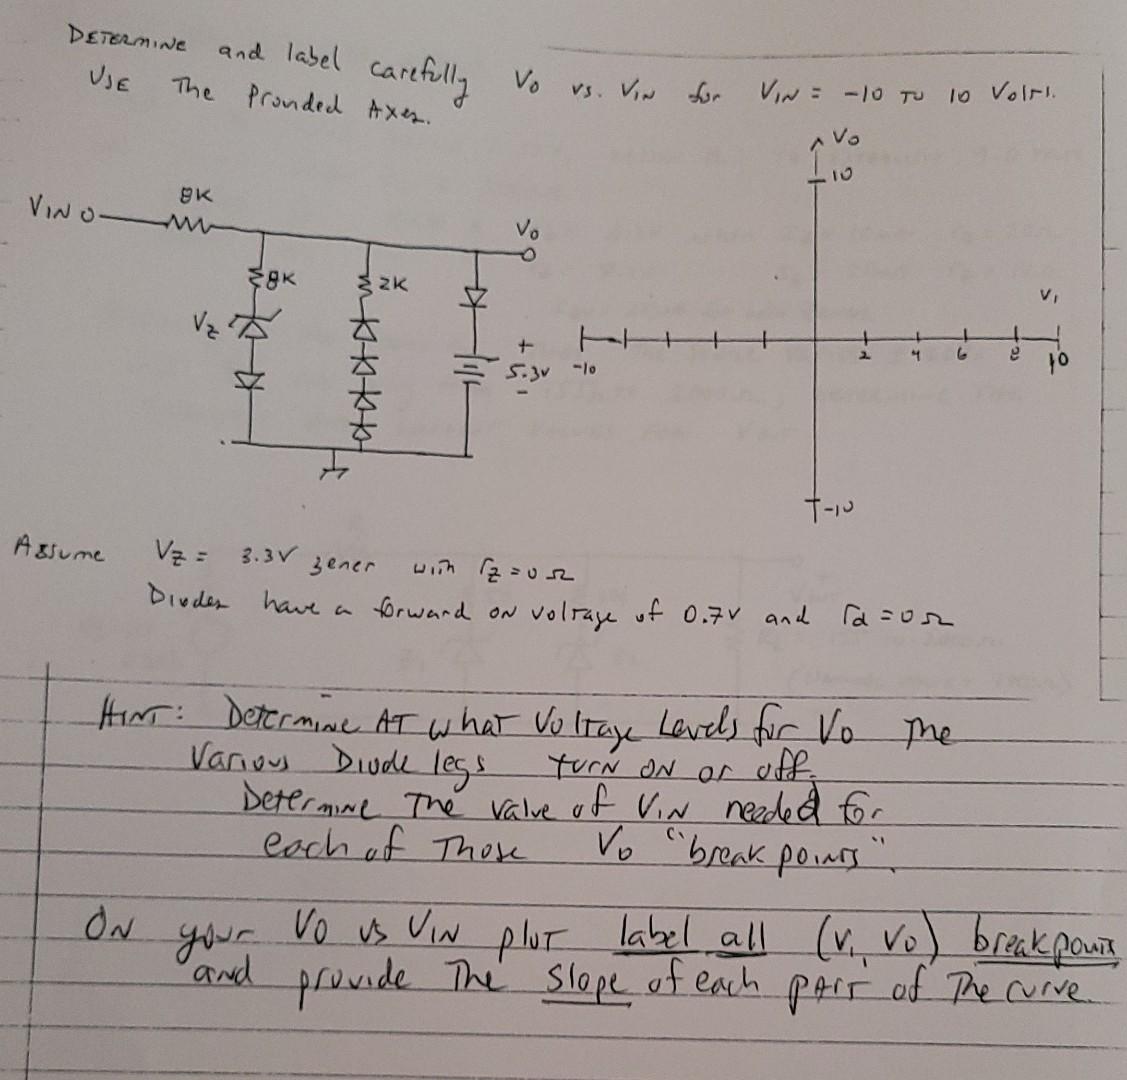 DETERMINE and label carefully Vo vs. VIN for VIN = -10 TO 10 Volts.
USE The Provided Axes.
Vo
10
VIN
8K
Vo
8K
2K
Vz
+
5.3V
-
V1
-10
2
4
6
8
10
-10
Assume Vz = 3.3V zener with rz = 0 Ω
Diodes have a forward on voltage of 0.7V and rd = 0 Ω
HINT: Determine AT what Voltage Levels for Vo The
Various Diode legs turn on or off.
Determine The value of VIN needed for
each of Those Vo "break points".
ON your Vo vs VIN plot label all (V1, Vo) breakpoints
and provide The slope of each part of The curve.